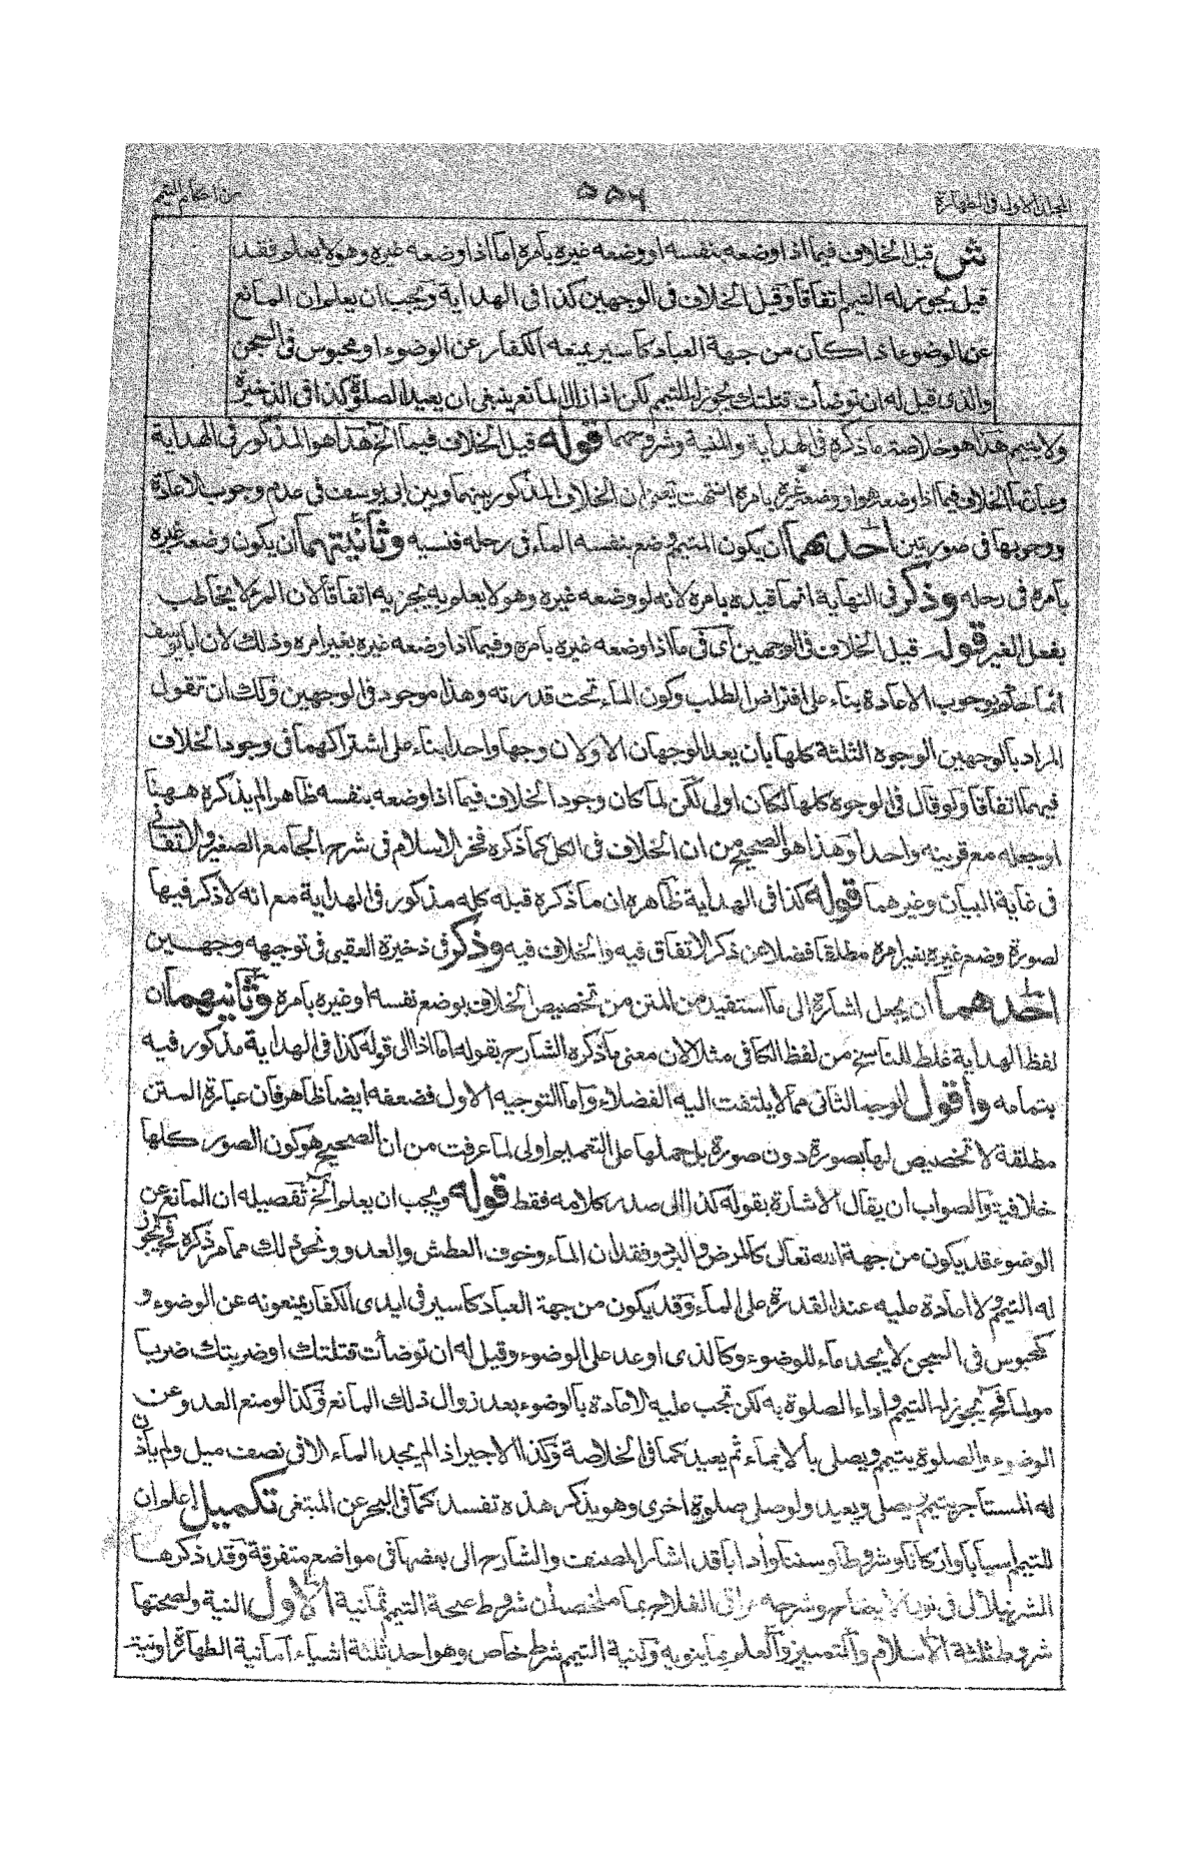 المجلد الاول فى الطهارة ۵۵۶ من احكام التيمم
ش قيل الخلاف فيما اذا وضعه بنفسه او وضعه غيره بامره اما اذا وضعه غيره وهو لا يعلم فقد
قيل يجوز له التيمم اتفاقا وقيل الخلاف فى الوجهين كذا فى الهداية ويجب ان يعلم ان المانع
عن الوضوء اذا كان من جهة العباد كاسير يمنعه الكفار عن الوضوء او محبوس فى السجن
والذى قيل له ان توضأت قتلتك يجوز له التيمم لكن اذا زال المانع ينبغى ان يعيد الصلوة كذا فى الذخيرة
ولا يتيمم هذا هو خلاصة ما ذكره فى الهداية والمنية وشروحهما قوله قيل الخلاف فيما الخ هذا هو المذكور فى الهداية
وعبارتها الخلاف فيما اذا وضعه هو او وضعه غيره بامره انتهت يعنى ان الخلاف المذكور بينهما وبين ابى يوسف فى عدم وجوب الاعادة
ووجوبها فى صورتين احدهما ان يكون المتيمم وضع بنفسه الماء فى رحله فنسيه وثانيتهما ان يكون وضعه غيره
بامره فى رحله وذكر فى النهاية انما قيده بامره لانه لو وضعه غيره وهو لا يعلم به يجزيه اتفاقا لان المرء لا يخاطب
بفعل الغير قوله قيل الخلاف فى الوجهين اى فى ما اذا وضعه غيره بامره وفيما اذا وضعه غيره بغير امره وذلك لان ابا يوسف
انما حكم بوجوب الاعادة بناء على افتراض الطلب وكون الماء تحت قدرته وهذا موجود فى الوجهين ولك ان تقول
المراد بالوجهين الوجوه الثلثة كلها بأن يعد الوجهان الاولان وجها واحدا بناء على اشتراكهما فى وجود الخلاف
فيهما اتفاقا ولو قال فى الوجوه كلها لكان اولى لكن لما كان وجود الخلاف فيما اذا وضعه بنفسه ظاهرا لم يذكره ههنا
او جعله مع قرينه واحدا وهذا هو الصحيح من ان الخلاف فى الكل كما ذكره فخر الاسلام فى شرح الجامع الصغير والاتقانى
فى غاية البيان وغيرهما قوله كذا فى الهداية ظاهره ان ما ذكره قبله كله مذكور فى الهداية مع انه لا ذكر فيها
لصورة وضع غيره بغير امره مطلقا فضلا عن ذكر الاتفاق فيه والخلاف فيه وذكر فى ذخيرة العقبى فى توجيهه وجهين
احدهما ان يجعل اشارة الى ما استفيد من المتن من تخصيص الخلاف بوضع نفسه او غيره بامره وثانيهما ان
لفظ الهداية غلط للناسخ من لفظ الكافى مثلا لان معنى ما ذكره الشارح بقوله اما اذا الى قوله كذا فى الهداية مذكور فيه
بتمامه وأقول الوجه الثانى مما لا يلتفت اليه الفضلاء واما التوجيه الاول فضعفه ايضا ظاهر فان عبارة المتن
مطلقة لا تخصيص لها بصورة دون صورة بل حملها على التعميم اولى لما عرفت من ان الصحيح هو كون الصور كلها
خلافية والصواب ان يقال الاشارة بقوله كذا الى صدر كلامه فقط قوله ويجب ان يعلم الخ تفصيله ان المانع عن
الوضوء قد يكون من جهة الله تعالى كالمرض والبرد وفقدان الماء وخوف العطش والعدو ونحو ذلك مما مر ذكره فحينئذ يجوز
له التيمم ولا اعادة عليه عند القدرة على الماء وقد يكون من جهة العباد كاسير فى ايدى الكفار يمنعونه عن الوضوء و
كمحبوس فى السجن لا يجد ماء للوضوء وكالذى اوعد على الوضوء وقيل له ان توضأت قتلتك او ضربتك ضربا
مولما فحينئذ يجوز له التيمم واداء الصلوة به لكن تجب عليه الاعادة بالوضوء بعد زوال ذلك المانع وكذا لو منع العدو عن
الوضوء والصلوة يتيمم ويصلى بالايماء ثم يعيد كما فى الخلاصة وكذا الاجير اذا لم يجد الماء الا فى نصف ميل ولم يأذن
له المستاجر يتيمم ويصلى ويعيد ولو صلى صلوة اخرى وهو يذكر هذه تفسد كما فى البحر عن المبتغى تكميل اعلم ان
للتيمم اسبابا واركانا وشروطا وسننا وآدابا قد اشار المصنف والشارح الى بعضها فى مواضع متفرقة وقد ذكرها
الشرنبلالى فى نور الايضاح وشرحه مراقى الفلاح بما ملخصه ان شروط صحة التيمم ثمانية الاول النية ولصحتها
شروط ثلثة الاسلام والتمييز والعلم بما ينويه ولنية التيمم شرط خاص وهو احد ثلثة اشياء اما نية الطهارة او نية